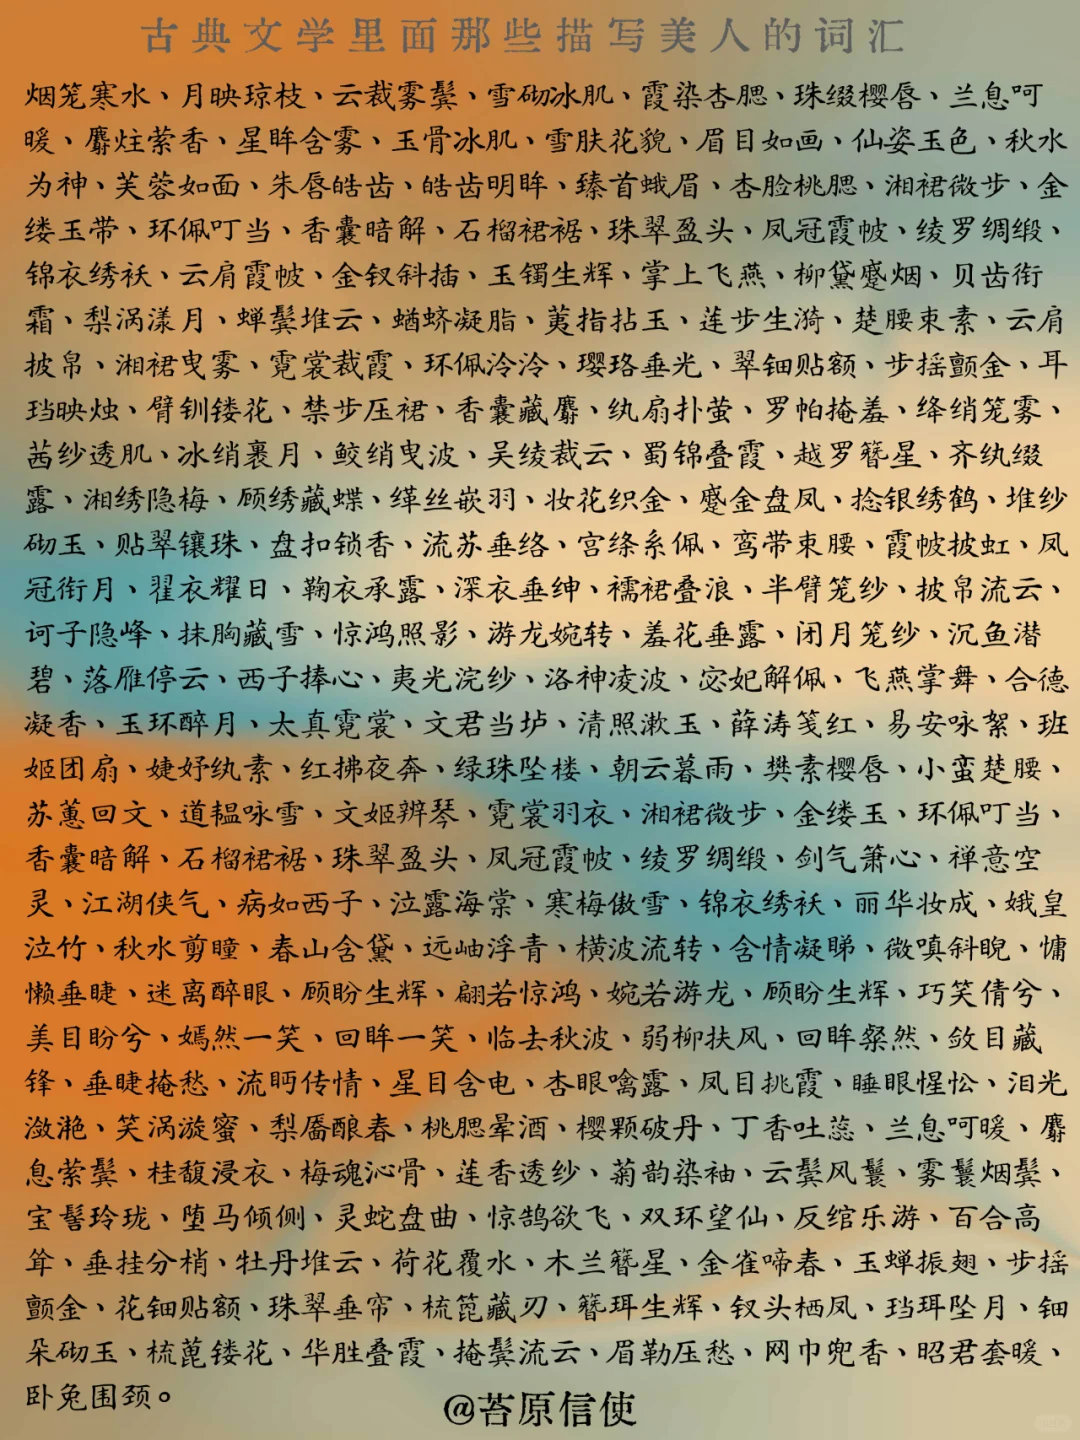 古典文学里面那些描写美人的词汇
烟笼寒水、月映琼枝、云裁雾鬓、雪砌冰肌、霞染杏腮、珠缀樱唇、兰息呵
暖、麝炷萦香、星眸含雾、玉骨冰肌、雪肤花貌、眉目如画、仙姿玉色、秋水
为神、芙蓉如面、朱唇皓齿、皓齿明眸、臻首蛾眉、杏脸桃腮、湘裙微步、金
缕玉带、环佩叮当、香囊暗解、石榴裙裾、珠翠盈头、凤冠霞帔、绫罗绸缎、
锦衣绣袄、云肩霞帔、金钗斜插、玉镯生辉、掌上飞燕、柳黛蹙烟、贝齿衔
霜、梨涡漾月、蝉鬓堆云、蝤蛴凝脂、荑指拈玉、莲步生漪、楚腰束素、云肩
披帛、湘裙曳雾、霓裳裁霞、环佩泠泠、璎珞垂光、翠钿贴额、步摇颤金、耳
珰映烛、臂钏镂花、禁步压裙、香囊藏麝、纨扇扑萤、罗帕掩羞、绛绡笼雾、
茜纱透肌、冰绡裹月、鲛绡曳波、吴绫裁云、蜀锦叠霞、越罗簪星、齐纨缀
露、湘绣隐梅、顾绣藏蝶、缂丝嵌羽、妆花织金、蹙金盘凤、捻银绣鹤、堆纱
砌玉、贴翠镶珠、盘扣锁香、流苏垂络、宫绦系佩、鸾带束腰、霞帔披虹、凤
冠衔月、翟衣耀日、鞠衣承露、深衣垂绅、襦裙叠浪、半臂笼纱、披帛流云、
诃子隐峰、抹胸藏雪、惊鸿照影、游龙婉转、羞花垂露、闭月笼纱、沉鱼潜
碧、落雁停云、西子捧心、夷光浣纱、洛神凌波、宓妃解佩、飞燕掌舞、合德
凝香、玉环醉月、太真霓裳、文君当垆、清照漱玉、薛涛笺红、易安咏絮、班
姬团扇、婕妤纨素、红拂夜奔、绿珠坠楼、朝云暮雨、樊素樱唇、小蛮楚腰、
苏蕙回文、道韫咏雪、文姬辨琴、霓裳羽衣、湘裙微步、金缕玉、环佩叮当、
香囊暗解、石榴裙裾、珠翠盈头、凤冠霞帔、绫罗绸缎、剑气箫心、禅意空
灵、江湖侠气、病如西子、泣露海棠、寒梅傲雪、锦衣绣袄、丽华妆成、娥皇
泣竹、秋水剪瞳、春山含黛、远岫浮青、横波流转、含情凝睇、微嗔斜睨、慵
懒垂睫、迷离醉眼、顾盼生辉、翩若惊鸿、婉若游龙、顾盼生辉、巧笑倩兮、
美目盼兮、嫣然一笑、回眸一笑、临去秋波、弱柳扶风、回眸粲然、敛目藏
锋、垂睫掩愁、流眄传情、星目含电、杏眼噙露、凤目挑霞、睡眼惺忪、泪光
潋滟、笑涡漩蜜、梨靥酿春、桃腮晕酒、樱颗破丹、丁香吐蕊、兰息呵暖、麝
息萦鬓、桂馥浸衣、梅魂沁骨、莲香透纱、菊韵染袖、云鬓风鬟、雾鬟烟鬓、
宝髻玲珑、堕马倾侧、灵蛇盘曲、惊鹄欲飞、双环望仙、反绾乐游、百合高
耸、垂挂分梢、牡丹堆云、荷花覆水、木兰簪星、金雀啼春、玉蝉振翅、步摇
颤金、花钿贴额、珠翠垂帘、梳篦藏刃、簪珥生辉、钗头栖凤、珰珥坠月、钿
朵砌玉、梳蓖镂花、华胜叠霞、掩鬓流云、眉勒压愁、网巾兜香、昭君套暖、
卧兔围颈。
@苔原信使